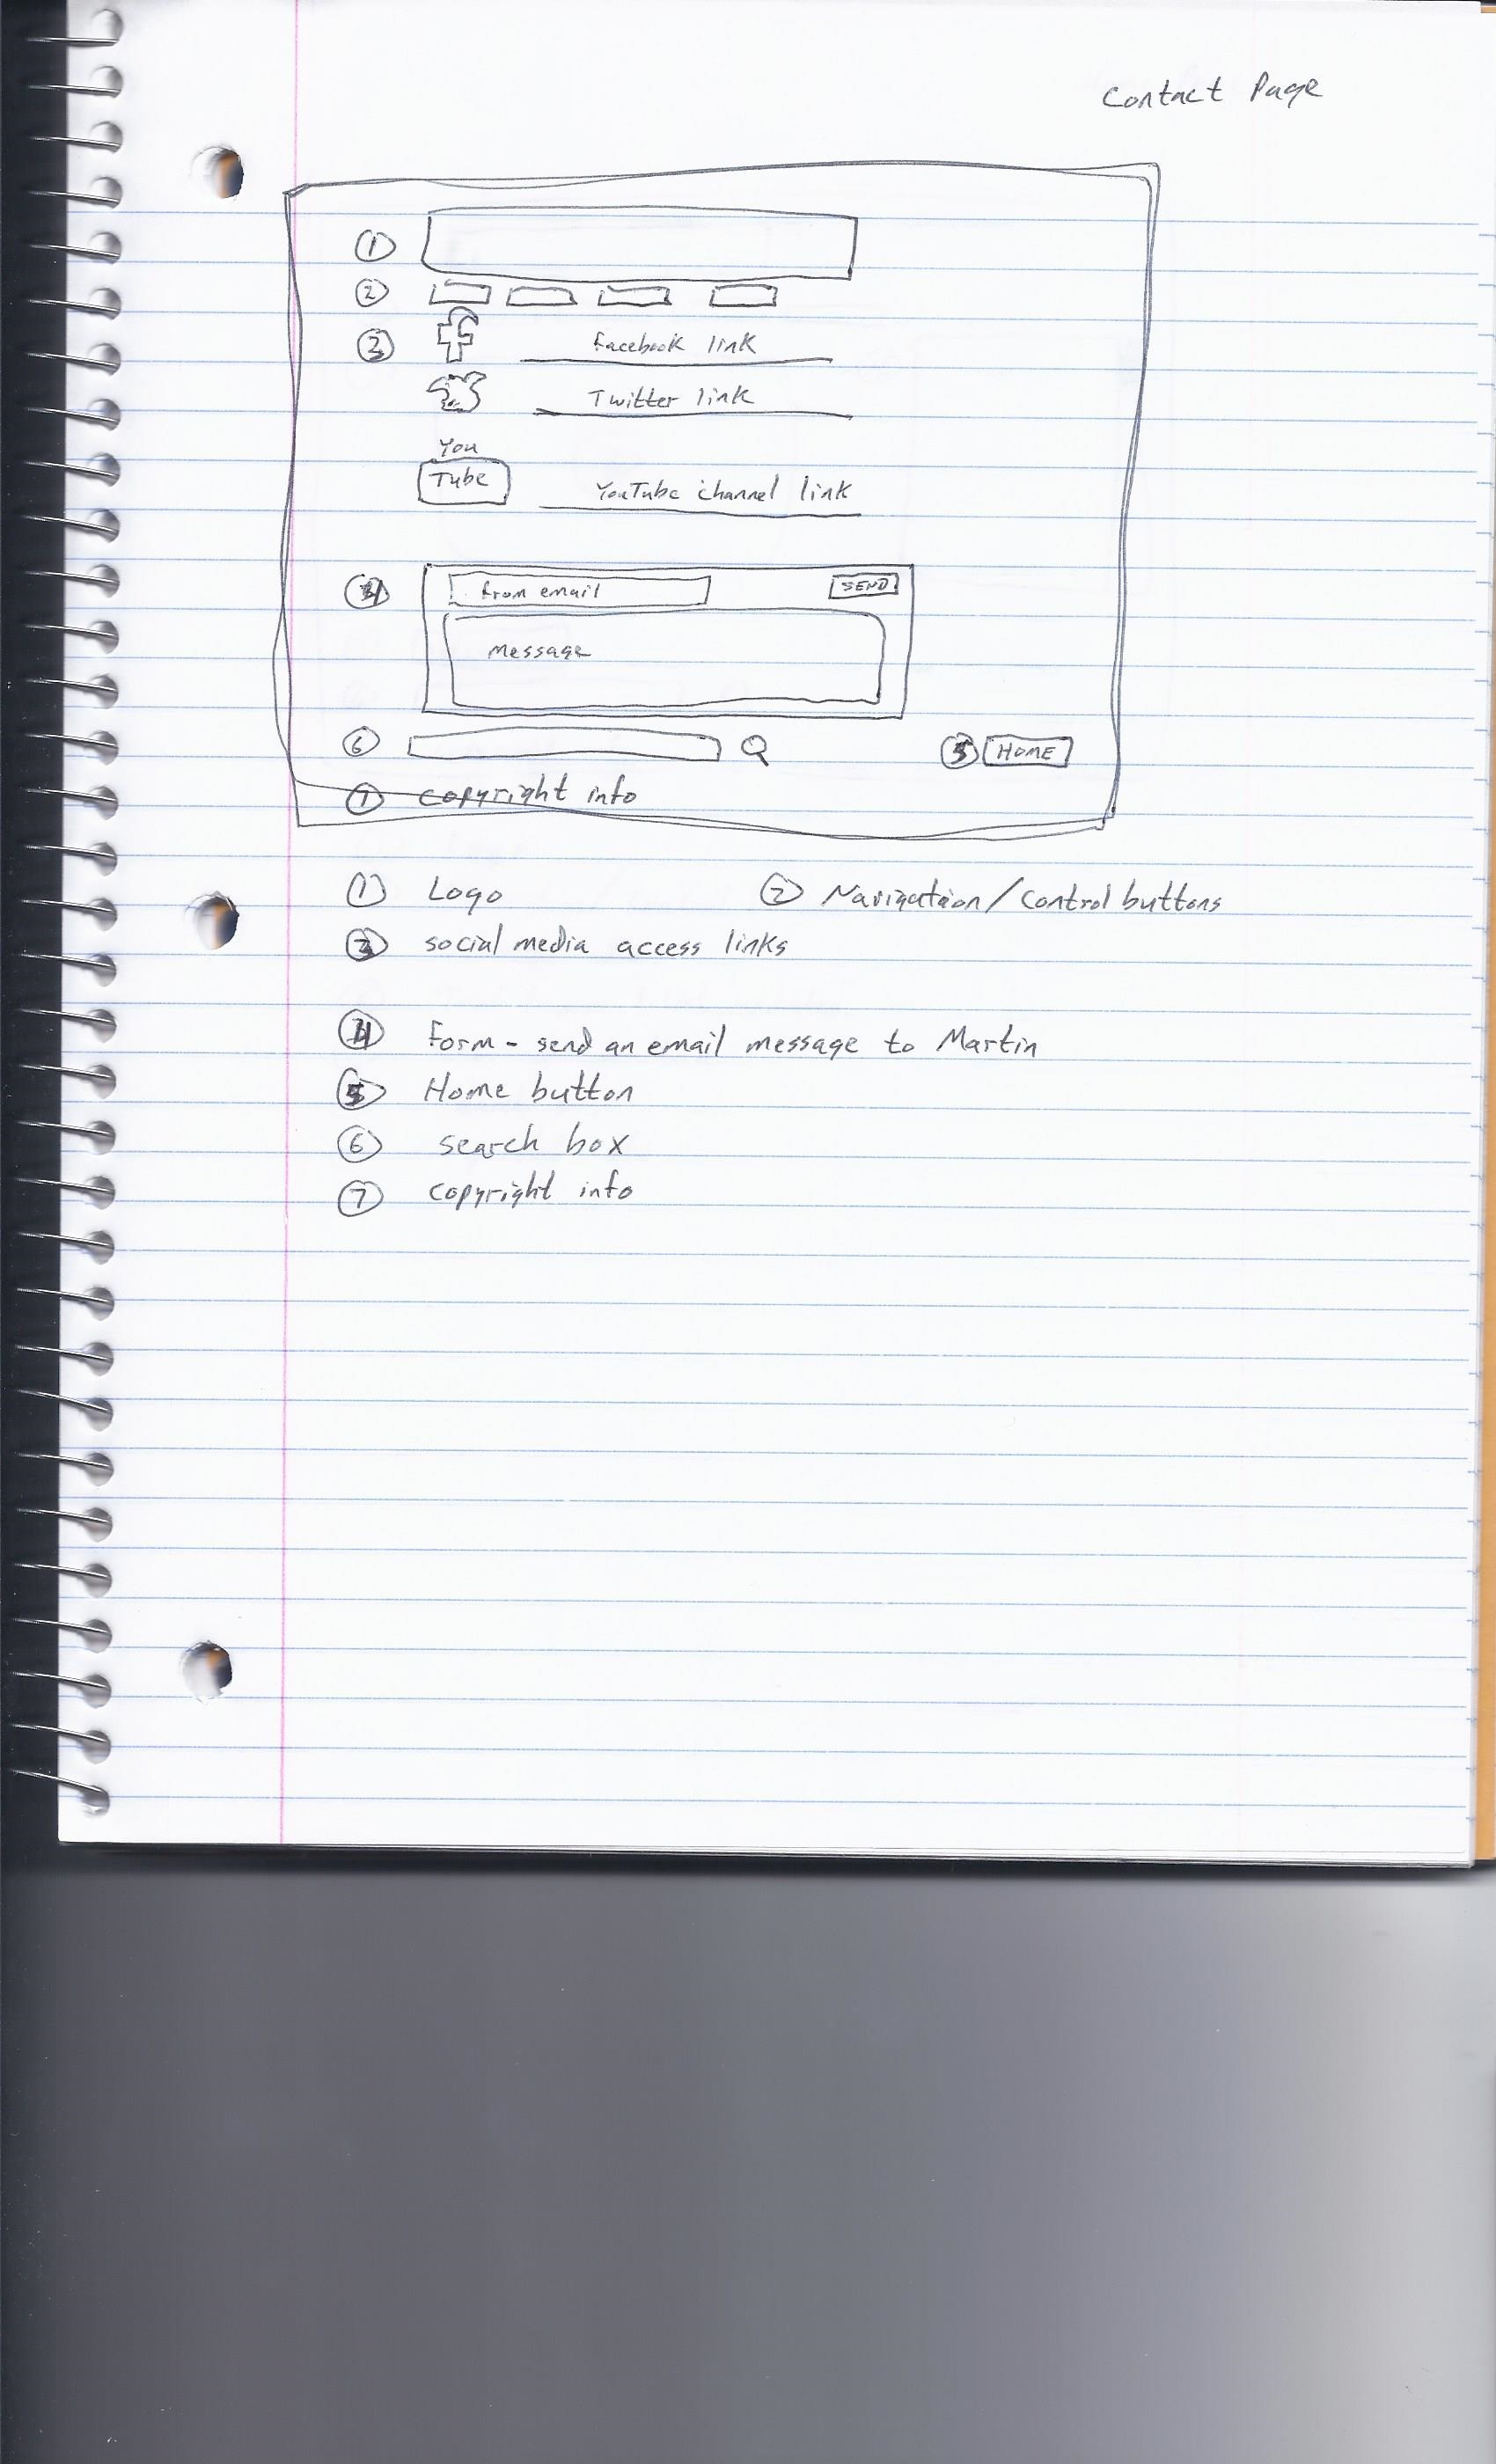 Contact Page
①
②
③ f facebook link
Twitter link
You
Tube YouTube channel link
④ from email SEND
Message
⑥ ⑤ HOME
⑦ copyright info
① Logo ② Navigation/Control buttons
③ social media access links
④ Form - send an email message to Martin
⑤ Home button
⑥ search box
⑦ copyright info